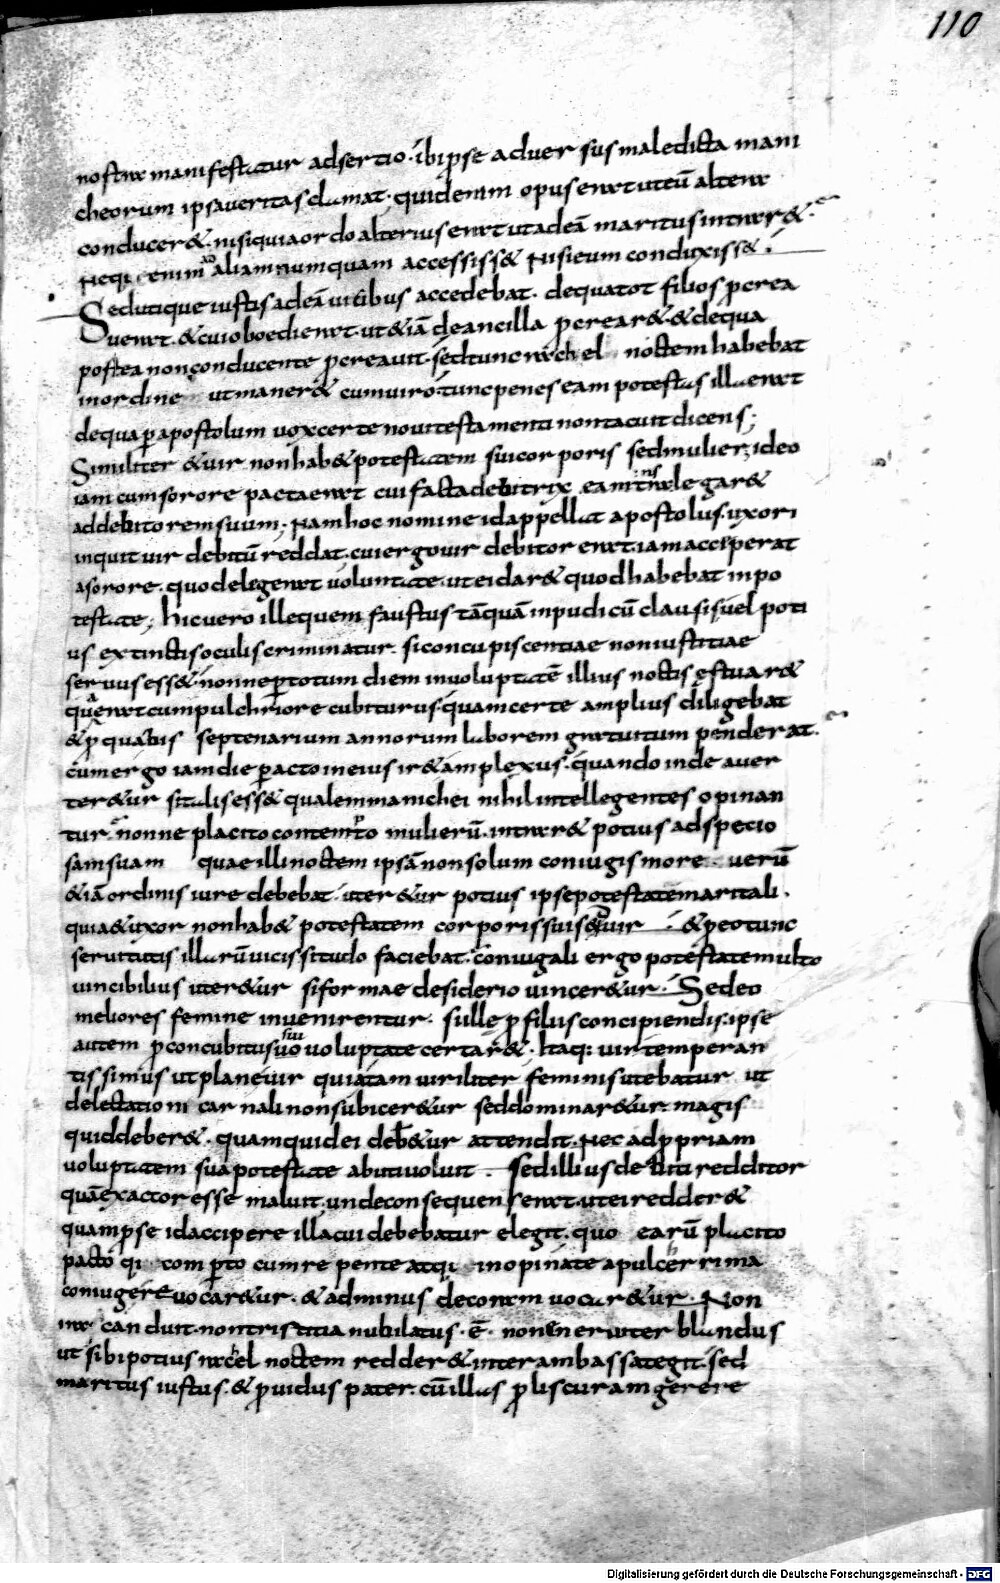 110
nostra manifestatur adsertio. ibi ipse aduersus maledicta mani
cheorum ipsa ueritas clamat. quid enim opus erat ut eū altera
conducer&. nisi quia ordo alterius erat ut ad eā maritus intrar&.
Neq; enim ad aliam numquam accessiss& nisi eum conduxiss&.
Sed utique iustis ad eā uicibus accedebat. de qua tot filios procrea
uerat. & cui oboedierat ut & iā de ancilla procrear&. & de qua
postea non conducente procreauit. sed tunc rachel noctem habebat
in ordine ut maner& cum uiro. tunc penes eam potestas illa erat
de qua p apostolum uox certe noui testamenti non tacuit dicens;
Similiter & uir non hab& potestatem sui corporis sed mulier; ideo
iam cum sorore pacta erat cui facta debitrix eam translegar&
ad debitorem suum; Nam hoc nomine id appellat apostolus. uxori
inquit uir debitū reddat. cui ergo uir debitor erat. iam acciperat
a sorore. quod elegerat uoluntate. ut ei dar& quod habebat in po
testate; hic uero ille quem faustus tāquā inpudicū clausis uel poti
us extinctis oculis criminatur. si concupiscentiae non iustitiae
seruus ess&. nonne p totum diem in uoluptatē illius noctis ęstuar&
qua erat cum pulchriore cubiturus. quam certe amplius diligebat
& p qua bis septenarium annorum laborem gratuitum penderat.
cum ergo iam die pacto in eius ir& amplexus. quando inde auer
ter&ur si talis ess& qualem manichei nihil intellegentes opinan
tur. nonne placito contempto mulierū. intrar& potius ad specio
sam suam quae illi noctem ipsā non solum coniugis more uerū
& iā ordinis iure debebat. uter&ur potius ipse potestate maritali.
quia & uxor non hab& potestatem corporis sui sed uir & p eo tunc
seruitutis illarū uicissitudo faciebat. coniugali ergo potestate multo
uincibilius uter&ur si formae desiderio uincer&ur. Sed eo
meliores femine inuenirentur. si ille p filiis concipiendis. ipse
autem p concubitus sui uoluptate certar&. Itaq; uir temperan
tissimus ut plane uir quia tam uiriliter feminis utebatur ut
delectationi carnali non subicer&ur sed dominar&ur. magis
quid deber&. quam quid ei deb&ur attendit. Nec ad ppriam
uoluptatem sua potestate abuti uoluit. sed illius debiti redditor
quā exactor esse maluit. unde consequens erat ut ei redder&
quam pse id accipere illa cui debebatur elegit. quo earū placito
pacto q; comperto cum repente atq; inopinate a pulcherrima
coniuge reuocar&ur. & ad minus decoram uocar&ur. Non
ira canduit. non tristitia nubilatus. ē. non eneruiter blandus
ut sibi potius rachel noctem redder& inter ambas sategit. sed
maritus iustus. & puidus pater. cū illas plis curam gerere